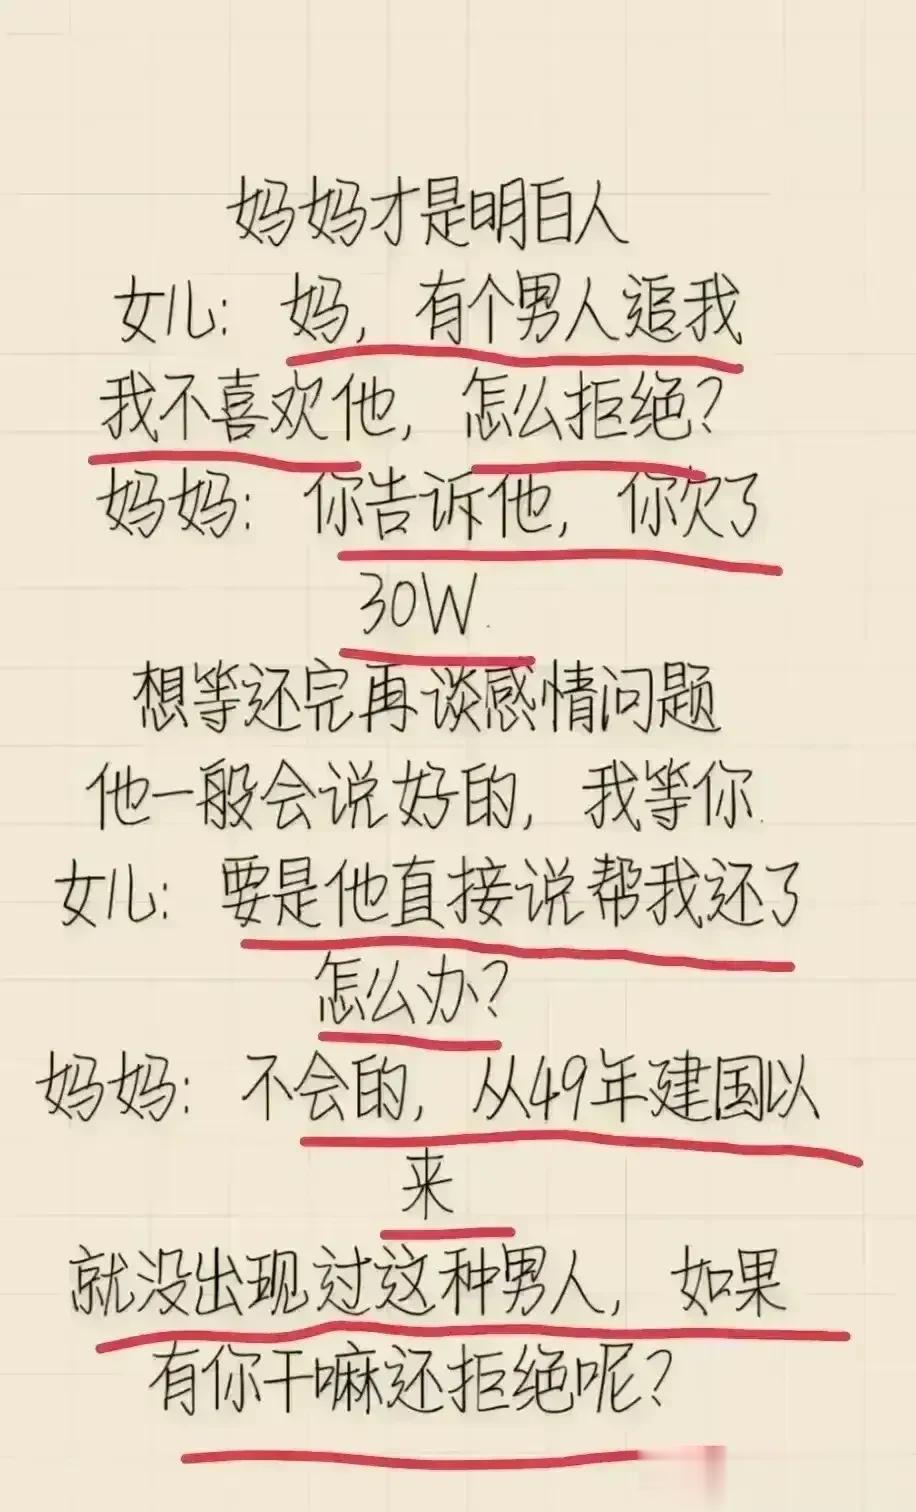 妈妈才是明白人
女儿：妈，有个男人追我
我不喜欢他，怎么拒绝？
妈妈：你告诉他，你欠了
30W.
想等还完再谈感情问题
他一般会说好的，我等你.
女儿：要是他直接说帮我还了
怎么办？
妈妈：不会的，从49年建国以
来
就没出现过这种男人，如果
有你干嘛还拒绝呢？